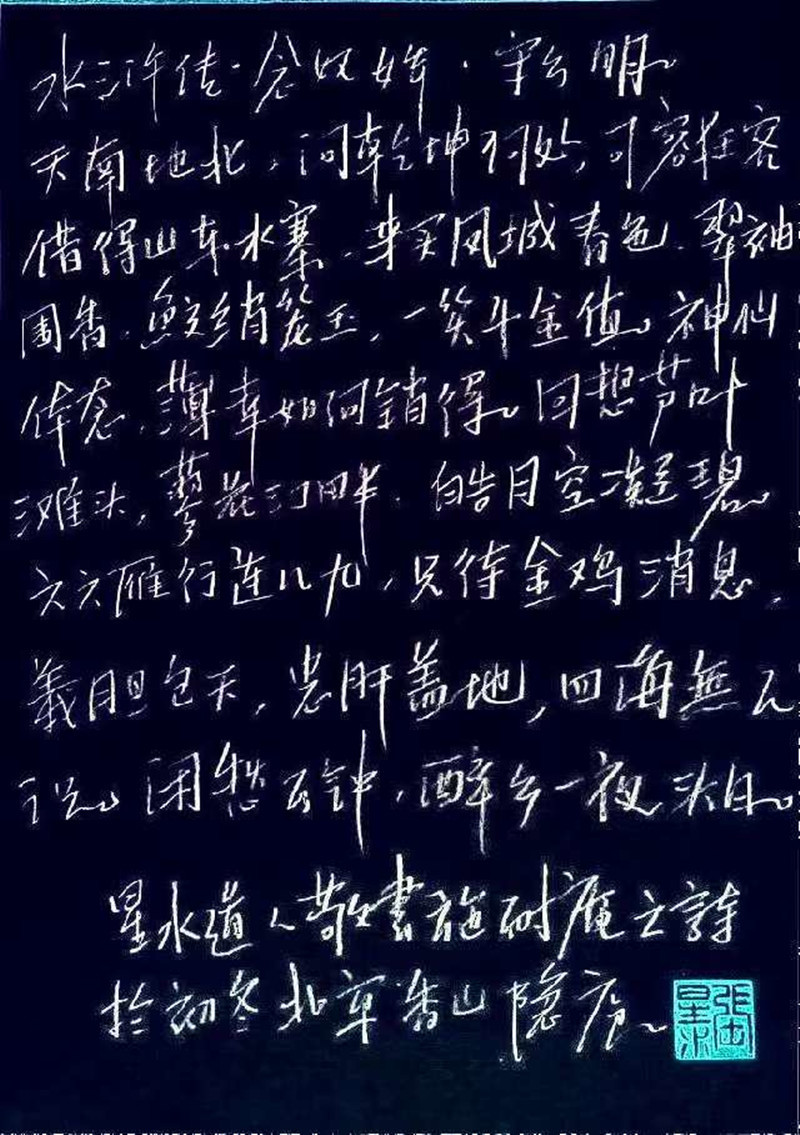 水浒传·念奴娇·宋公明。
天南地北，问乾坤何处，可容狂客
借得山东水寨，来买凤城春色，翠袖
围香，鲛绡笼玉，一笑千金值。神仙
体态，薄幸如何销得。回想芦叶
滩头，蓼花汀畔，皓月空凝碧。
六六雁行连八九，只待金鸡消息，
義胆包天，忠肝盖地，四海無人
识。闲愁万钟，醉乡一夜头白。
星水道人敬書施耐庵之詩
於初冬北京香山